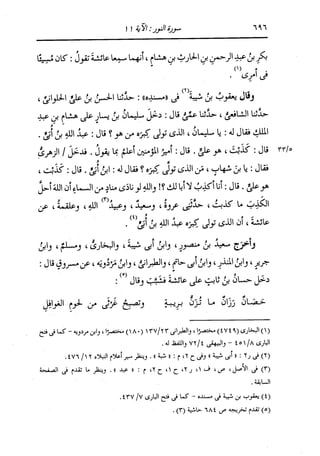 ٦٩٦
سورة النور : الآية ١١
بكرِ بنُ عبدِ الرحمنِ بنِ الحارثِ بنِ هشامٍ ، أنهما سمِعا عائشةَ تقولُ : كان مُسيئًا
فى أمرِى (١) .
وقال يعقوبُ بنُ شيبةَ (٢) فى «مسندِه» : حدَّثنا الحسنُ بنُ علىٍّ الحلوانىُّ ،
حدَّثنا الشافعىُّ ، حدَّثنا عمِّى قال : دخَل سليمانُ بنُ يسارٍ على هشامِ بنِ عبدِ
الملكِ فقال له : يا سليمانُ ، الذى تولَّى كِبرَه مَن هو ؟ قال : عبدُ اللهِ بنُ أُبىٍّ .
قال : كذَبتَ ، هو علىٌّ . قال : أميرُ المؤمنين أعلمُ بما يقولُ . فدخَل / الزهرىُّ
٣٣/٥
فقال : يا بنَ شهابٍ ، مَن الذى تولَّى كِبرَه ؟ فقال له : ابنُ أُبىٍّ . قال : كذَبتَ ،
هو علىٌّ . قال : أنا أكذِبُ لا أبا لك ؟! واللهِ لو نادَى منادٍ من السماءِ أن اللهَ أحلَّ
الكذِبَ ما كذَبتُ ، حدَّثنى عروةُ ، وسعيدٌ ، وعبيدُ (٣) اللهِ ، وعلقمةُ ، عن
عائشةَ ، أن الذى تولَّى كِبرَه عبدُ اللهِ بنُ أُبىٍّ (٤) .
وأخرَج سعيدُ بنُ منصورٍ ، وابنُ أبى شيبةَ ، والبخارىُّ ، ومسلمٌ ، وابنُ
جريرٍ ، وابنُ المنذرِ ، وابنُ أبى حاتمٍ ، والطبرانىُّ ، وابنُ مَرْدُويَه ، عن مسروقٍ قال :
دخَل حسانُ بنُ ثابتٍ على عائشةَ فشبَّب وقال (٥) :
حَصَانٌ رَزانٌ ما تُزَنُّ بريبةٍ وتصبحُ غَرْثَى من لحومِ الغوافلِ
(١) البخارى (٤٧٤٩) مختصرًا ، والطبرانى ١٣٧/٢٣ (١٨٠) مختصرًا ، وابن مردويه - كما فى فتح
البارى ٤٥١/٨ - والبيهقى ٧٢/٤ واللفظ له .
(٢) فى ر٢ : «أبى شيبة» وفى ح٢ ، م : «شبة» . وينظر سير أعلام النبلاء ٤٧٦/١٢ .
(٣) فى الأصل ، ص ، ف١ ، ر٢ ، ح١ ، ح٢ ، م : «عبد» . وينظر ما تقدم فى الصفحة
السابقة .
(٤) يعقوب بن شيبة فى مسنده - كما فى فتح البارى ٤٣٧/٧ .
(٥) تقدم تخريجه ص ٦٨٤ حاشية (٣) .